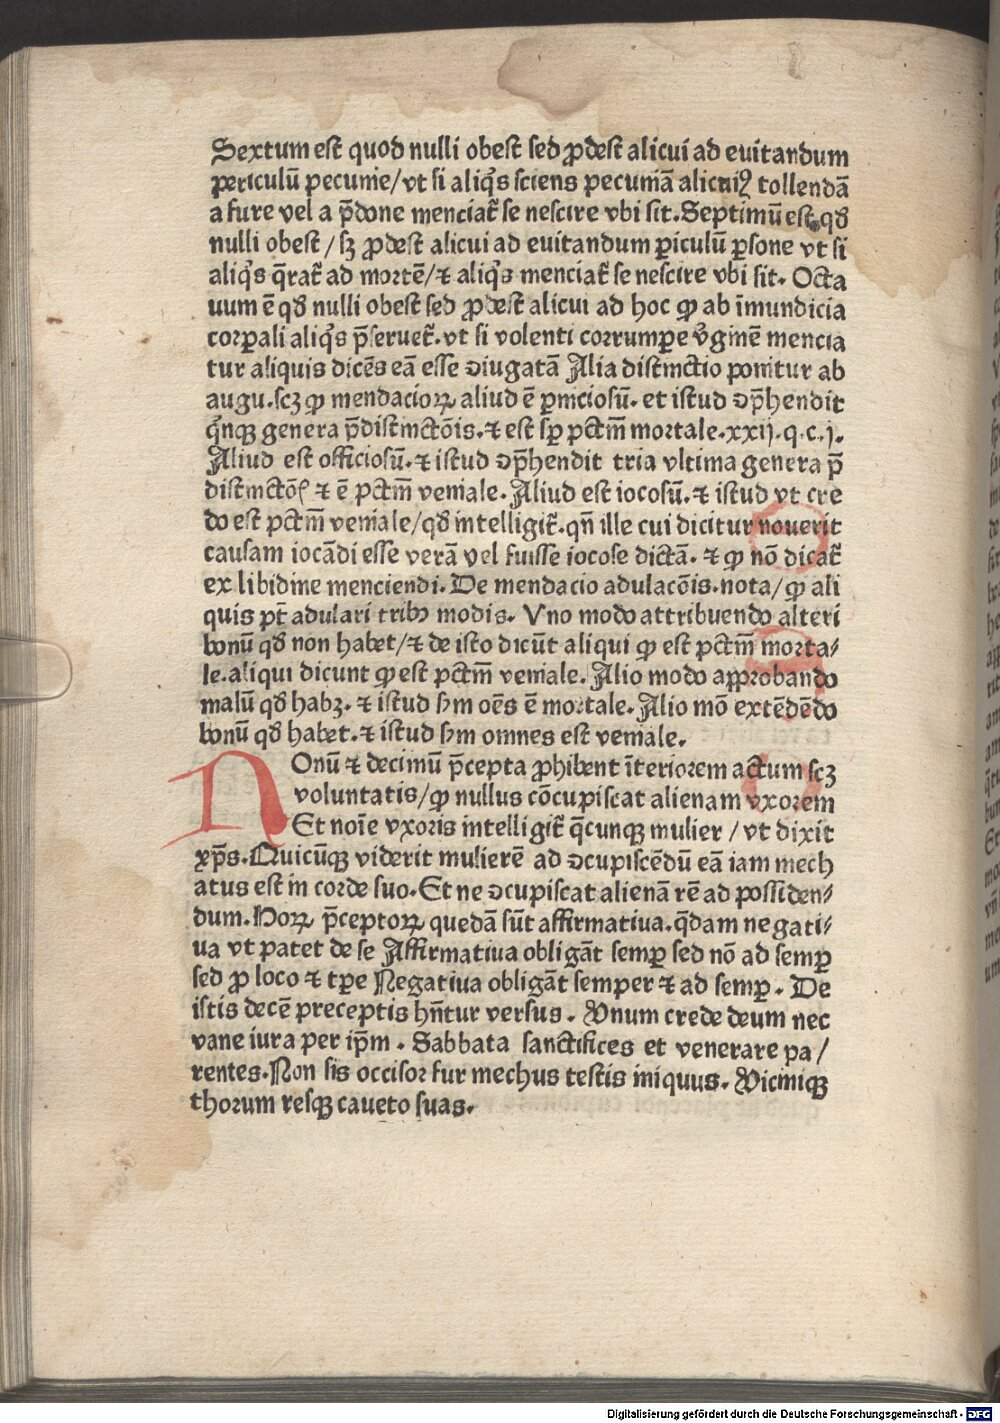 Sextum est quod nulli obest sed ꝓdest alicui ad euitandum
periculū pecunie/vt si aliq̇s sciens pecuniā alicuiꝰ tollendā
a fure vel a p̄done menciat̄ se nescire vbi sit. Septimū est qđ
nulli obest/sꝫ ꝓdest alicui ad euitandum ꝑiculū ꝑsone vt si
aliq̇s q̄rat̄ ad mortē/⁊ aliq̇s menciat̄ se nescire vbi sit. Octa
uum ē qđ nulli obest sed ꝓdest alicui ad hoc ꝙ ab īmundicia
corꝑali aliq̇s p̄seruet̄. vt si volenti corrumpe v̇ginē mencia
tur aliquis dicēs eā esse ↄiugatā Alia distinctio ponitur ab
augu. scꝫ ꝙ mendacioꝝ aliud ē ꝑniciosū. et istud ↄp̄hendit
q̇nqꝫ genera p̄distinctōis. ⁊ est sꝑ pctm̄ mortale. xxij. q. c. j.
Aliud est officiosū. ⁊ istud ↄp̄hendit tria vltima genera p̄
distinctōſ ⁊ ē pctm̄ veniale. Aliud est iocosū. ⁊ istud vt cre
do est pctm̄ veniale/qđ intelligit̄. qn̄ ille cui dicitur nouerit
causam iocādi esse verā vel fuisse iocose dictā. ⁊ ꝙ nō dicat̄
ex libidine menciendi. De mendacio adulacōis. nota/ꝙ ali
quis pt̄ adulari tribꝫ modis. Vno modo attribuendo alteri
bonū qđ non habet/⁊ de isto dicūt aliqui ꝙ est pctm̄ morta⸗
le. aliqui dicunt ꝙ est pctm̄ veniale. Alio modo approbando
malū qđ habꝫ. ⁊ istud sꝫm oēs ē mortale. Alio mō extēdēdo
bonū qđ habet. ⁊ istud sꝫm omnes est veniale.
NOnū ⁊ decimū p̄cepta ꝓhibent īteriorem actum scꝫ
voluntatis/ꝙ nullus cōcupiscat alienam vxorem
Et noīe vxoris intelligit̄ q̄cunqꝫ mulier/vt dixit
xp̄s. Quicūqꝫ viderit mulierē ad ↄcupiscēdū eā iam mech
atus est in corde suo. Et ne ↄcupiscat alienā rē ad possiden⸗
dum. Horꝝ p̄ceptorꝝ quedā sūt affirmatiua. q̄dam negati⸗
ua vt patet de se Affirmatiua obligāt semꝑ sed nō ad semꝑ
sed ꝓ loco ⁊ tꝑe Negatiua obligāt semper ⁊ ad semꝑ. De
istis decē preceptis hn̄tur versus. Vnum crede deum nec
vane iura per ip̄m. Sabbata sanctifices et venerare pa/
rentes. Non sis occisor fur mechus testis iniquus. Vicinіqꝫ
thorum resqꝫ caueto suas.
Digitalisierung gefördert durch die Deutsche Forschungsgemeinschaft - DFG